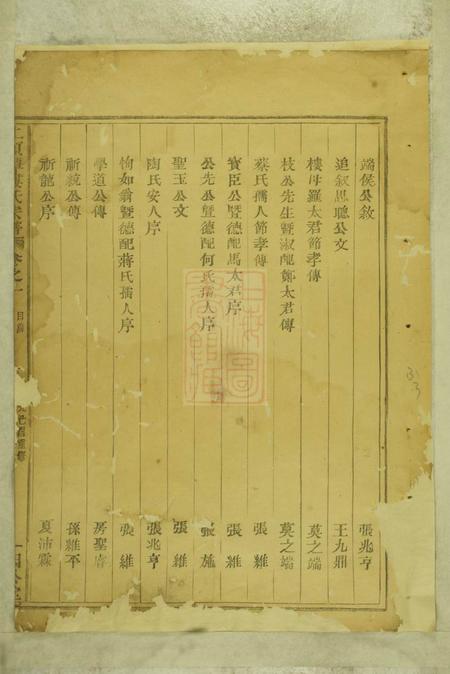 端侯公敘 張兆亨
追叙思聰公文 王九鼎
樓母羅太君節孝傳 莫之端
枝公先生暨淑配鄭太君傳 莫之端
蔡氏孺人節孝傳 張維
寳臣公暨德配馬太君序 張維
公先公暨德配何氏孺人序 張施
聖玉公文 張維
陶氏安人序 張兆亨
恂如翁暨德配蔣氏孺人序 張維
學道公傳 房聖睿
祈競公傳 孫維丕
祈龍公序 夏沛霖
氏宗譜 卷之一 目錄